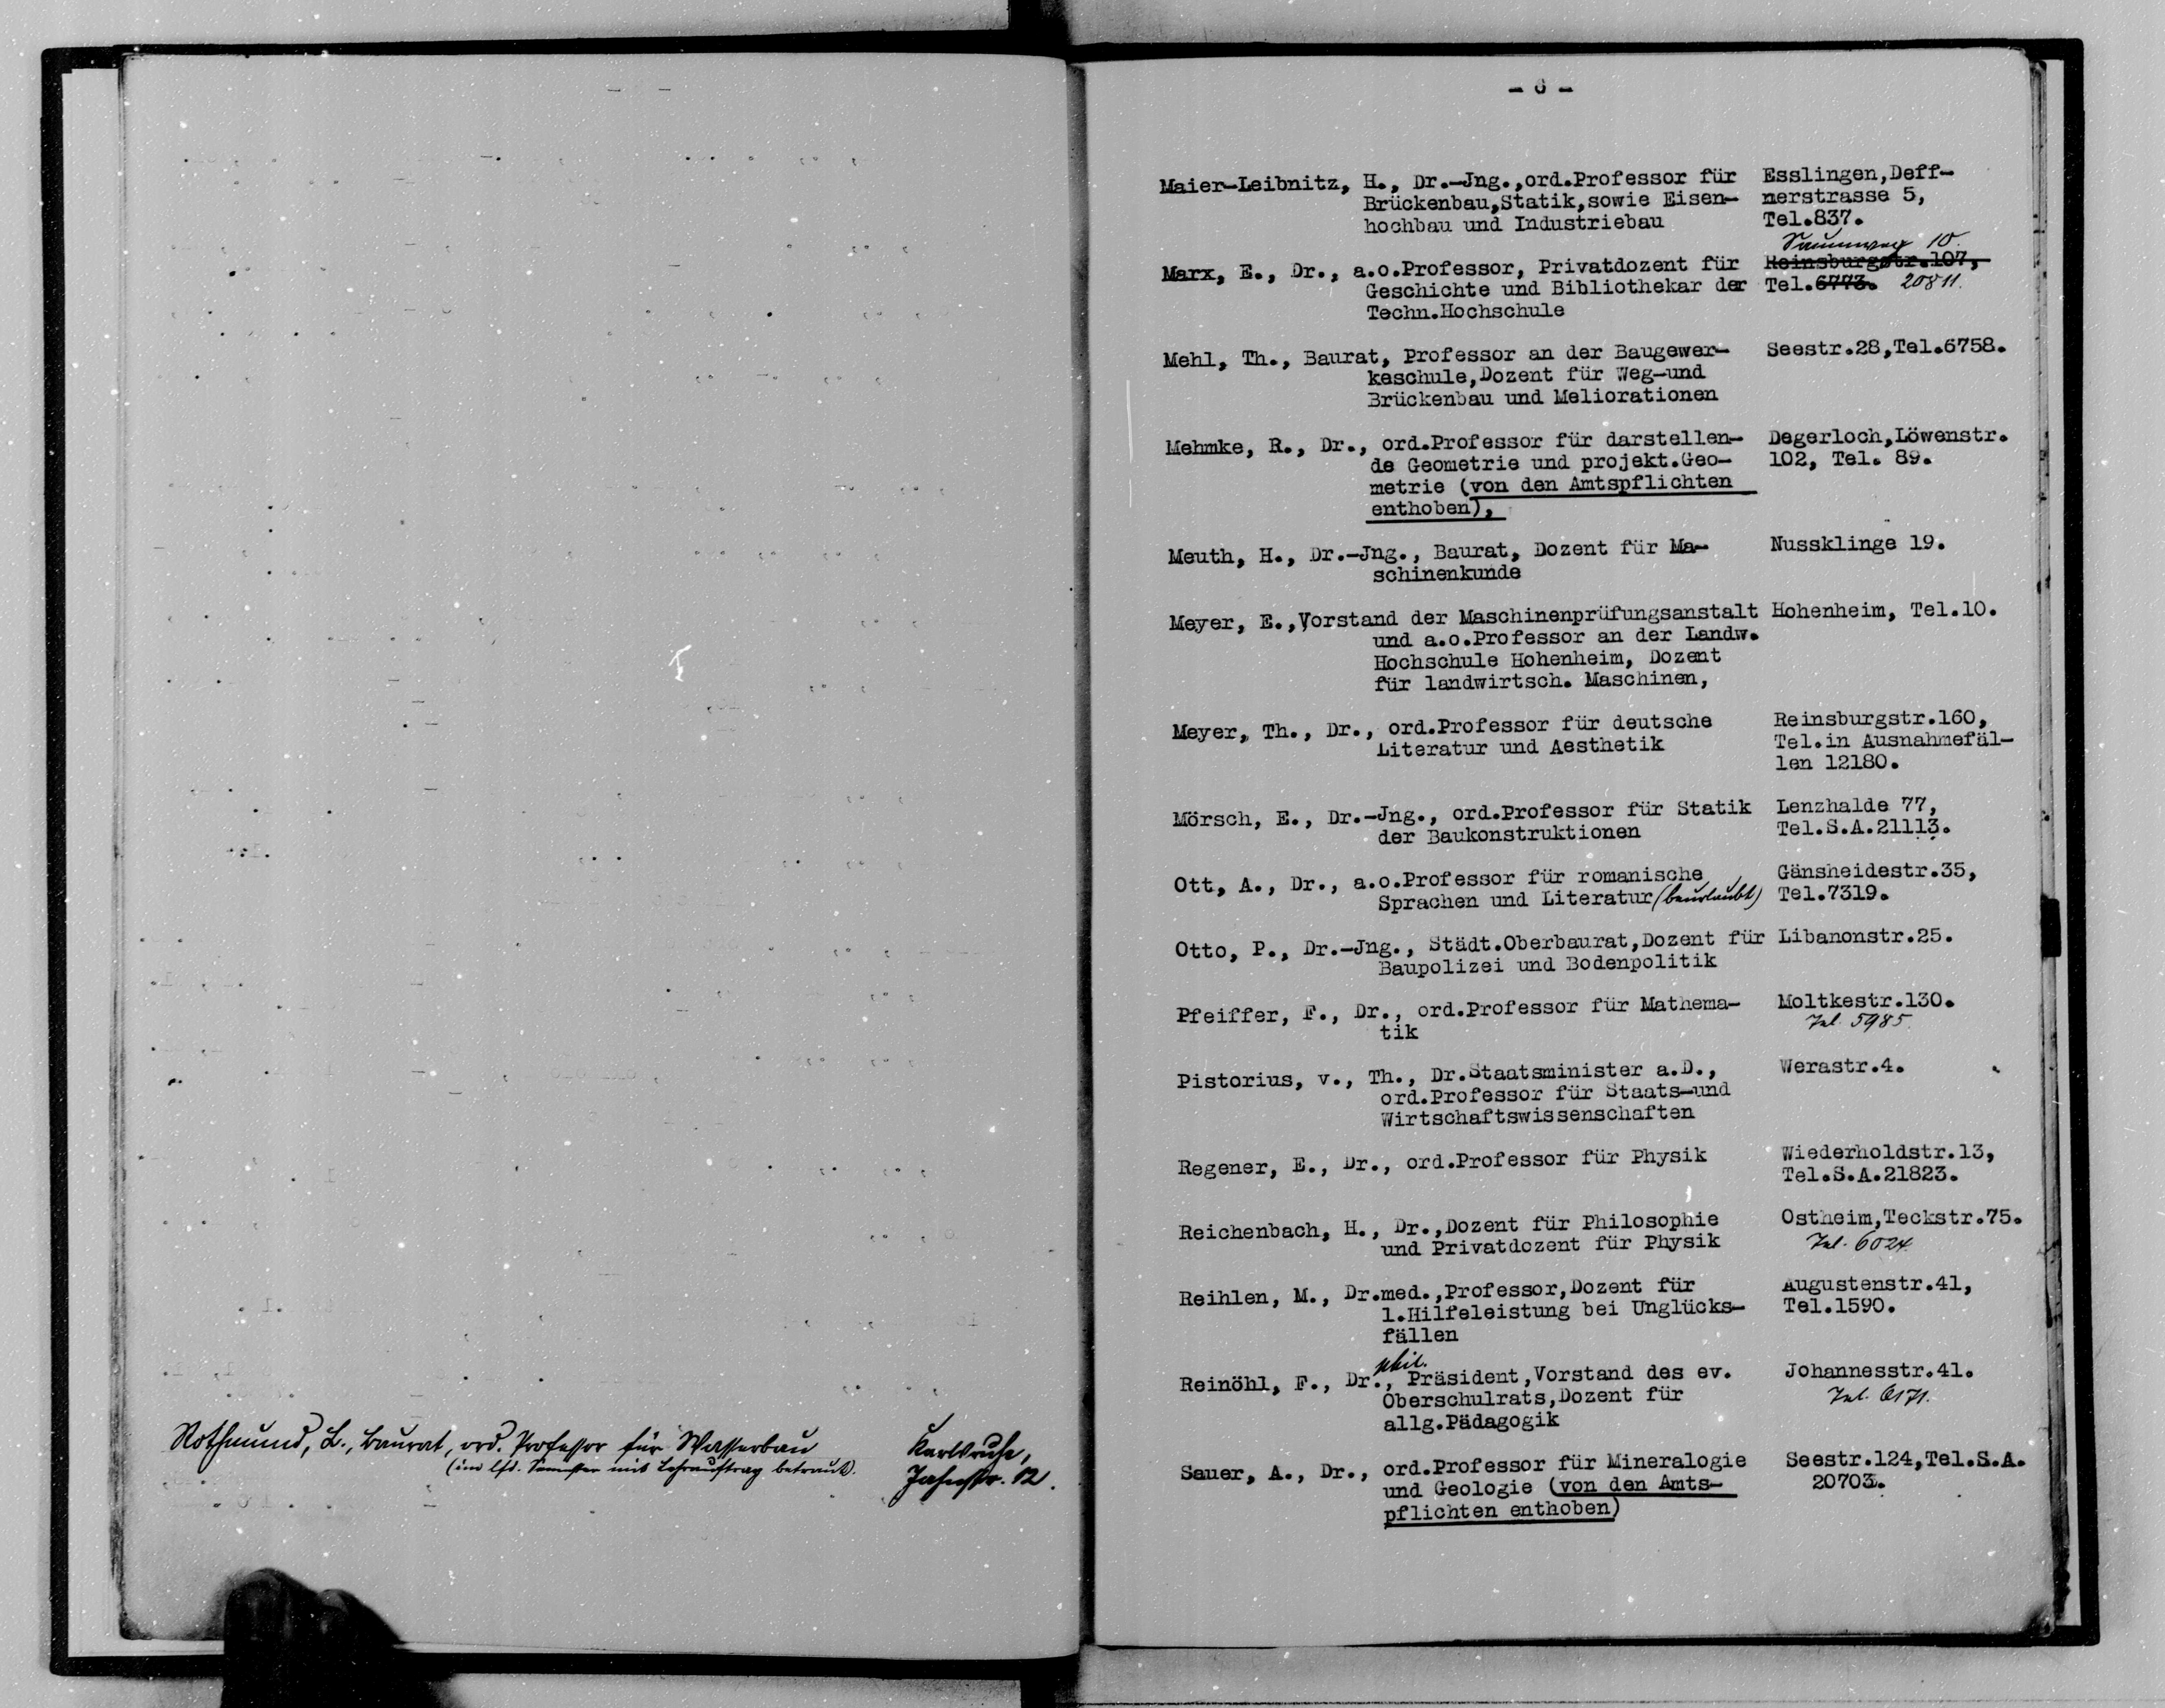 Rothmund, L., Baurat, ord. Professor für Wasserbau Karlsruhe,
(im lfd. Semester mit Lehrauftrag betraut). Jahnstr. 12.
- 6 -
Maier-Leibnitz, H., Dr.-Jng.,ord.Professor für Esslingen,Deff-
Brückenbau,Statik,sowie Eisen- nerstrasse 5,
hochbau und Industriebau Tel.837.
10.
Marx, E., Dr., a.o.Professor, Privatdozent für Reinsburgstr.107,
Geschichte und Bibliothekar der Tel.6773. 20811.
Techn.Hochschule
Mehl, Th., Baurat, Professor an der Baugewer- Seestr.28,Tel.6758.
keschule,Dozent für Weg-und
Brückenbau und Meliorationen
Mehmke, R., Dr., ord.Professor für darstellen- Degerloch,Löwenstr.
de Geometrie und projekt.Geo- 102, Tel. 89.
metrie (von den Amtspflichten
enthoben),
Meuth, H., Dr.-Jng., Baurat, Dozent für Ma- Nussklinge 19.
schinenkunde
Meyer, E.,Vorstand der Maschinenprüfungsanstalt Hohenheim, Tel.10.
und a.o.Professor an der Landw.
Hochschule Hohenheim, Dozent
für landwirtsch. Maschinen,
Meyer, Th., Dr., ord.Professor für deutsche Reinsburgstr.160,
Literatur und Aesthetik Tel.in Ausnahmefäl-
len 12180.
Mörsch, E., Dr.-Jng., ord.Professor für Statik Lenzhalde 77,
der Baukonstruktionen Tel.S.A.21113.
Ott, A., Dr., a.o.Professor für romanische Gänsheidestr.35,
Sprachen und Literatur (beurlaubt) Tel.7319.
Otto, P., Dr.-Jng., Städt.Oberbaurat,Dozent für Libanonstr.25.
Baupolizei und Bodenpolitik
Pfeiffer, F., Dr., ord.Professor für Mathema- Moltkestr.130.
tik Tel. 5985.
Pistorius, v., Th., Dr.Staatsminister a.D., Werastr.4.
ord.Professor für Staats-und
Wirtschaftswissenschaften
Regener, E., Dr., ord.Professor für Physik Wiederholdstr.13,
Tel.S.A.21823.
Reichenbach, H., Dr.,Dozent für Philosophie Ostheim,Teckstr.75.
und Privatdozent für Physik Tel. 6024
Reihlen, M., Dr.med.,Professor,Dozent für Augustenstr.41,
1.Hilfeleistung bei Unglücks- Tel.1590.
fällen
phil.
Reinöhl, F., Dr., Präsident,Vorstand des ev. Johannesstr.41.
Oberschulrats,Dozent für Tel. 6171.
allg.Pädagogik
Sauer, A., Dr., ord.Professor für Mineralogie Seestr.124,Tel.S.A.
und Geologie (von den Amts- 20703.
pflichten enthoben)